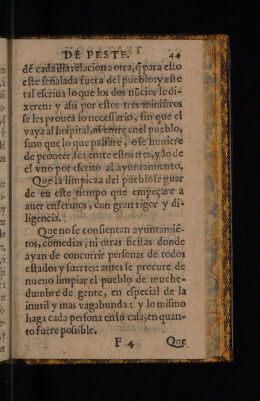 DE PESTE. 44
dé cada dia relacion a otra, q̃ para esto
este señalada fuera del pueblo: y este
tal escriua lo que los dos nũcios le di-
xeren: y assi por estos tres ministros
se les prouea lo necessario, sin que el
vaya al hospital, ni entre en el pueblo,
sino que lo que passare, o se huuiere
de proueer, sea entre estos tres, y lo de
el vno por escrito al ayuntamiento.
Que la limpieza del pueblo se guar
de en este tiempo que empeçare a
auer enfermos, con gran rigor y di-
ligencia.
Que no se consientan ayuntamié-
tos, comedias, ni otras fiestas donde
ayan de concurrir personas de todos
estados y suertes: antes se procure de
nueuo limpiar el pueblo de muche-
dumbre de gente, en especial de la
inutil y mas vagabunda: y lo mismo
haga cada persona en su casa, en quan-
to fuere possible.
F 4 Que